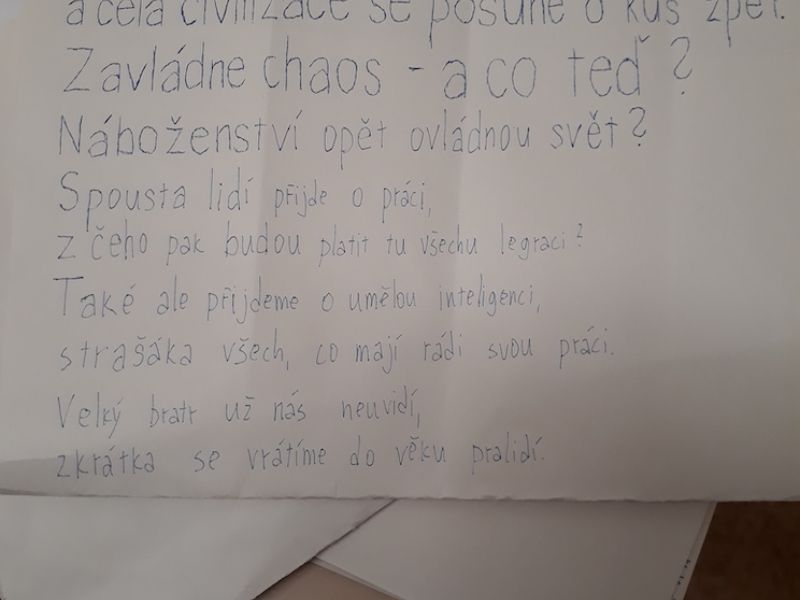 a celá civilizace se posune o kus zpět.
Zavládne chaos - a co teď?
Náboženství opět ovládnou svět?
Spousta lidí přijde o práci,
z čeho pak budou platit tu všechu legraci?
Také ale přijdeme o umělou inteligenci,
strašáka všech, co mají rádi svou práci.
Velký bratr už nás neuvidí,
zkrátka se vrátíme do věku pralidí.